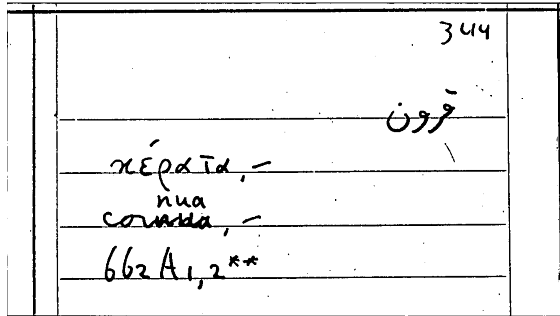 344
قرون
κέρατα, –
nua
cornua, –
662 A 1, 2**